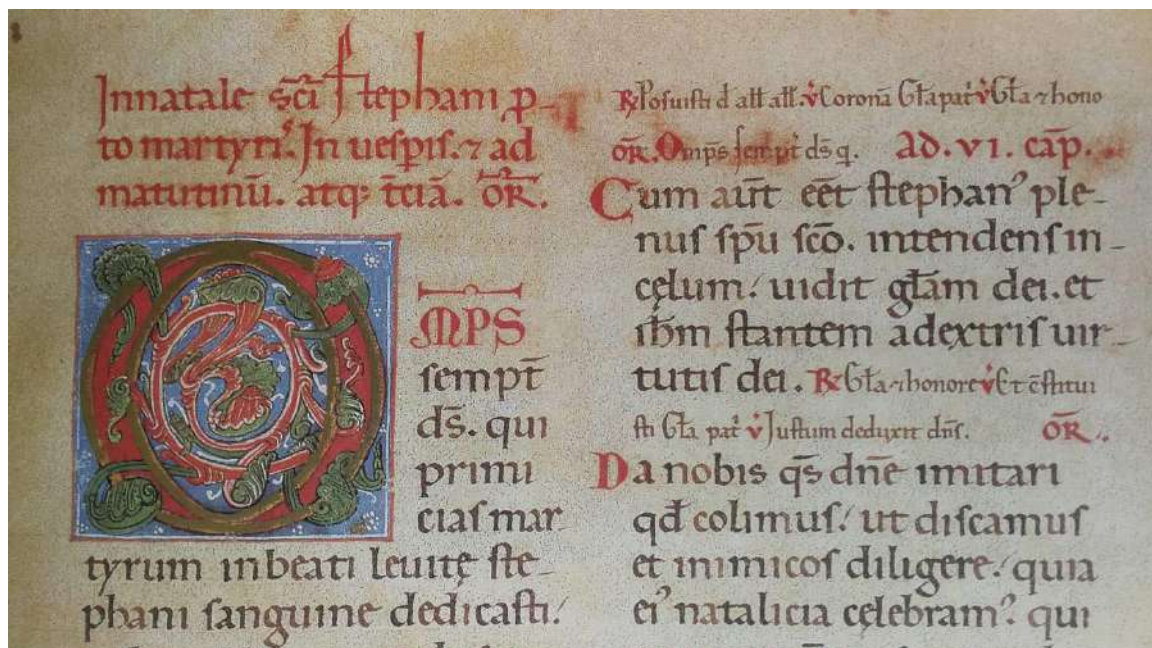 Innatale sc̄i Stephani p̄-
to martyri᷒. In uesp̄is. ⁊ ad
matutinū. atq; t̄ciā. OR̄.
O MP̄S
sempt̄
ds̄. qui
primi
cias mar
tyrum inbeati leuitę ste-
phani sanguine dedicasti.
℟ Posuisti d̄ all̄ all̄. v̄ Coronā Gl̄a pat᷒ v̄ Gl̄a ⁊ hono
OR̄. Omp̄s sempt̄ ds̄ q. ad. VI. cap̄.
Cum aūt eēt stephan᷒ ple-
nus sp̄u sc̄o. intendens in-
cęlum. uidit gl̄am dei. et
ihm̄ stantem adextris uir-
tutis dei. ℟ Gl̄a ⁊ honore v̄ Et c̄stitui
sti Gl̄a pat᷒ v̄ Justum deduxit dn̄s. OR̄.
Da nobis qs̄ dn̄e imitari
qd̄ colimus. ut discamus
et inimicos diligere. quia
ei᷒ natalicia cęlebram᷒. qui